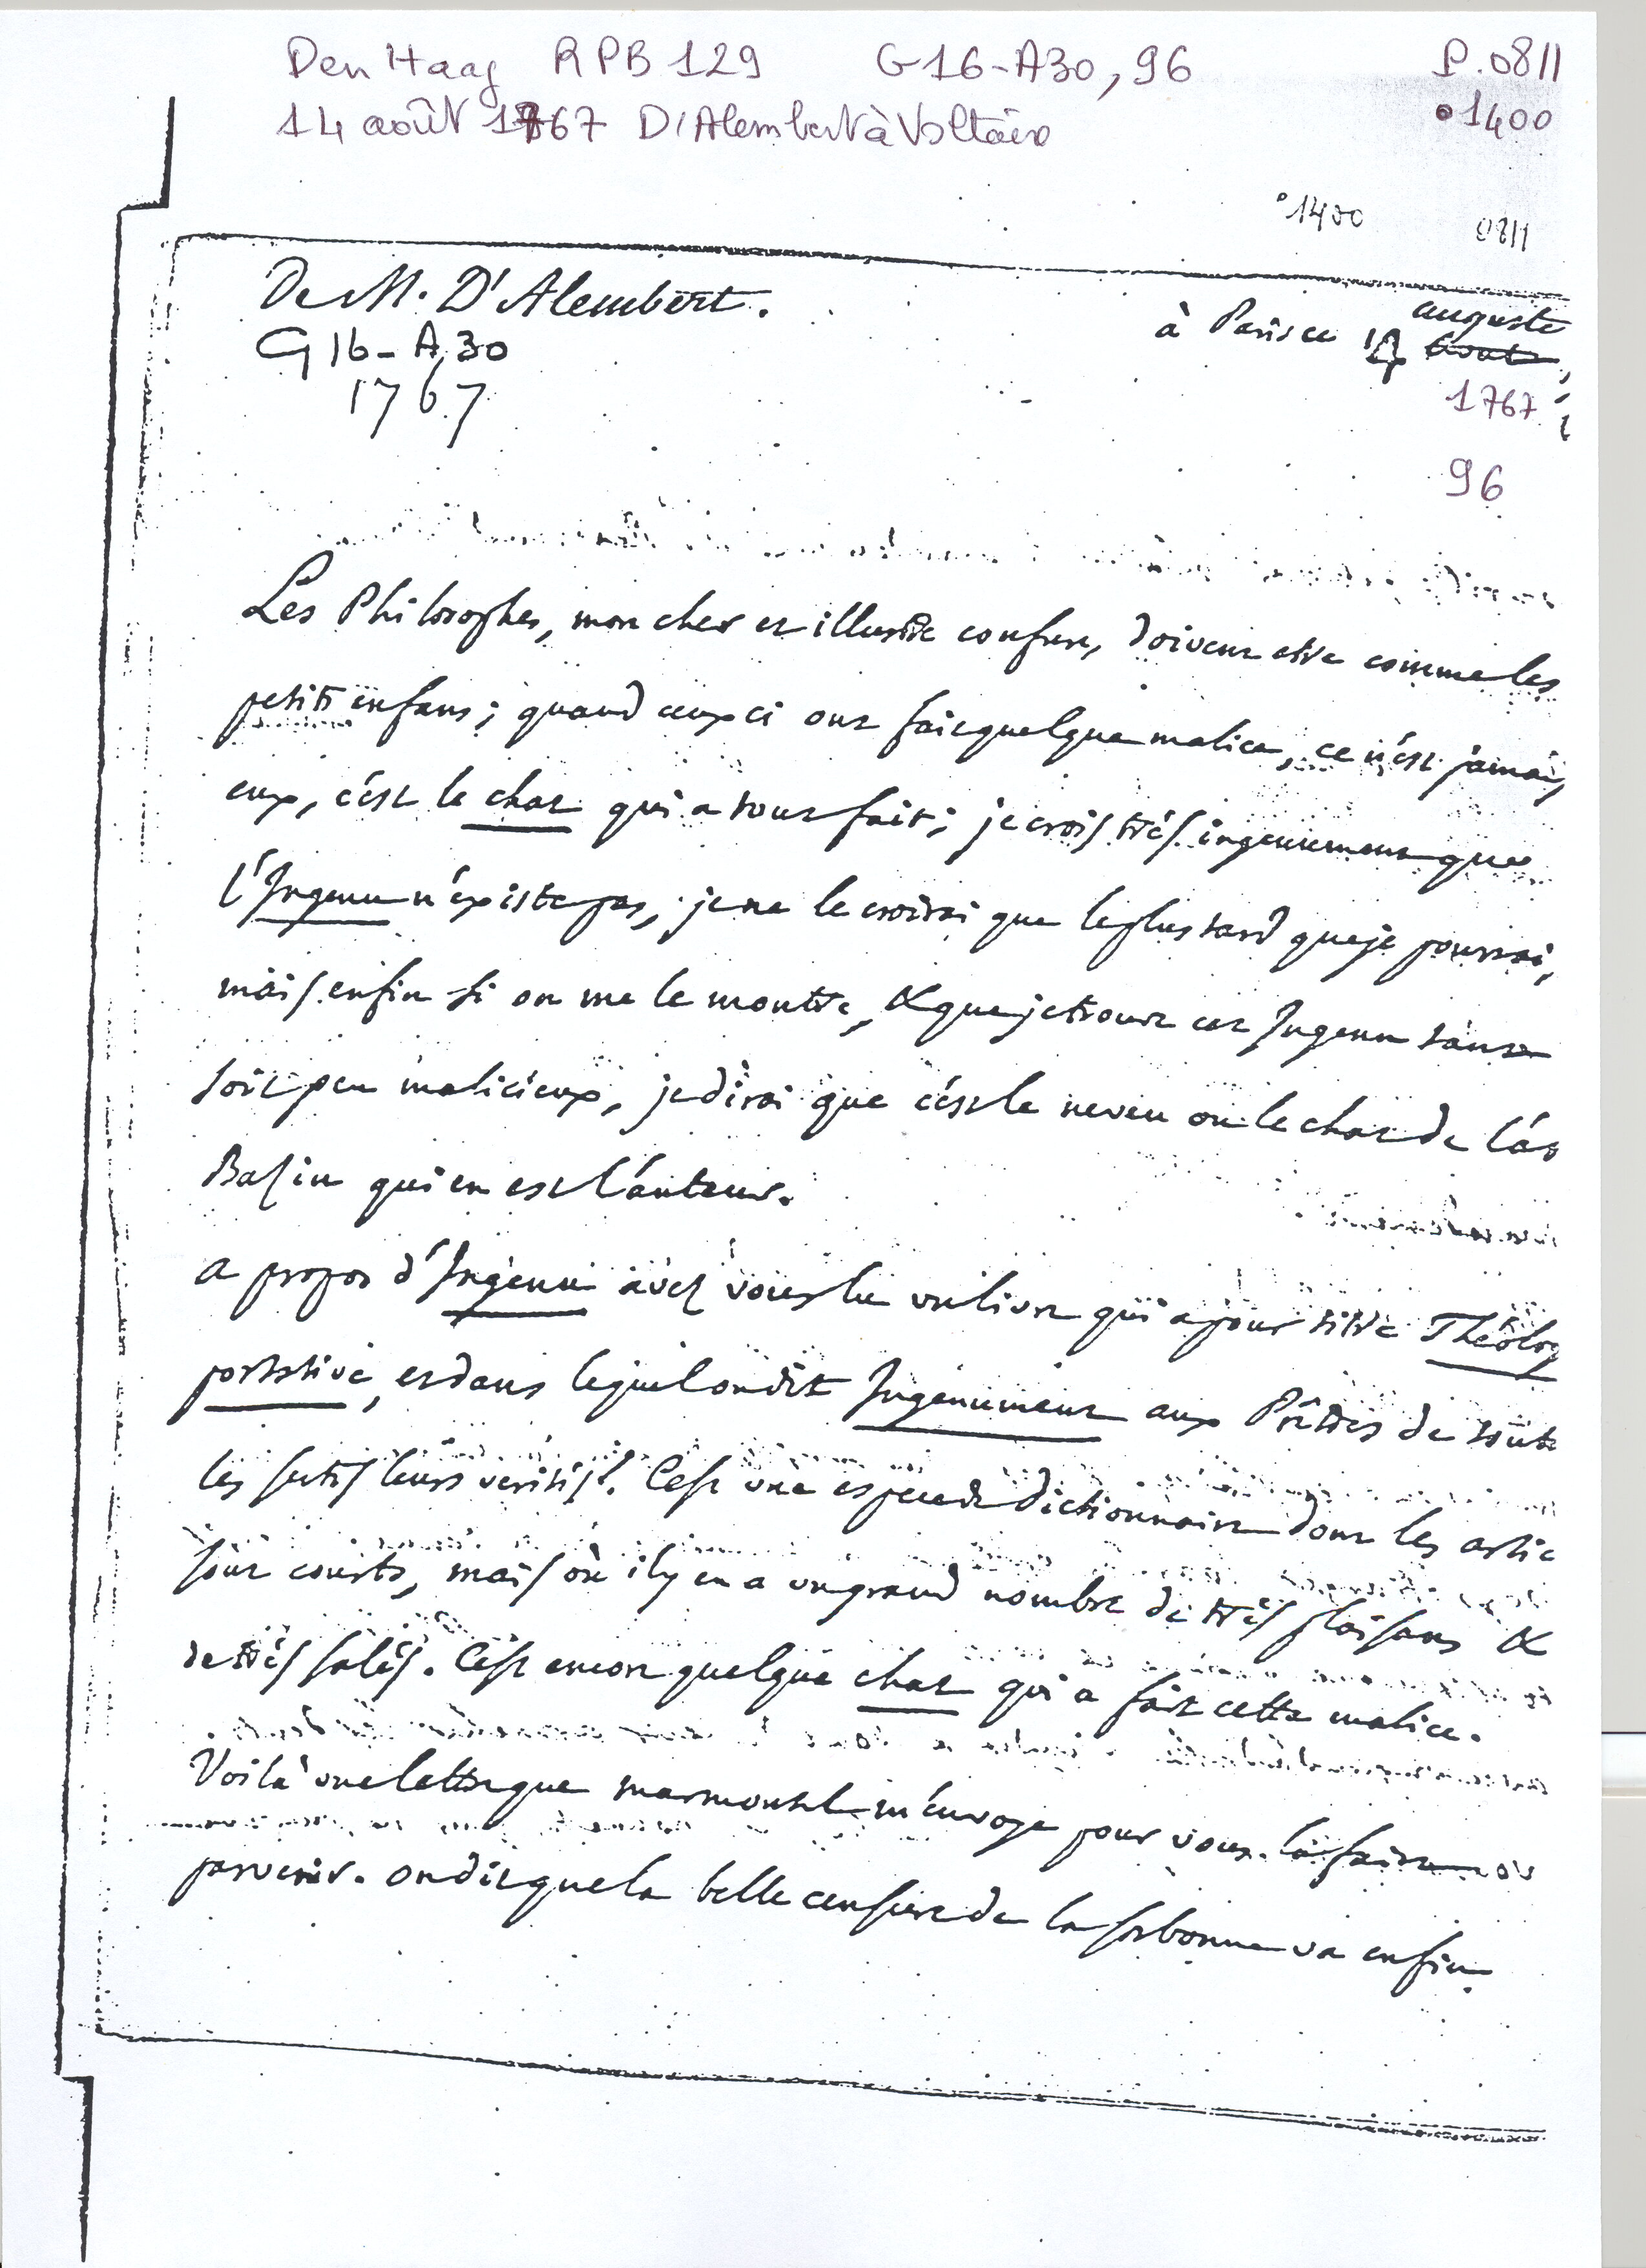 Den Haag RPB 129 G16-A30, 96 P.0811
14 août 1767 D'Alembert à Voltaire •1400
°1400 0811
De M. D'Alembert. auguste
G16-A,30 à Paris ce 14 aout,
1767 1767
96
Les Philosophes, mon cher et illustre confrere, doivent etre comme les
petits enfans; quand ceux ci ont fait quelque malice, ce n'est jamais
eux, c'est le chat qui a tout fait; je crois très ingenument que
l'Ingenu n'existe pas, je ne le croirai que le plus tard que je pourrai,
mais enfin si on me le montre, & que je trouve cet Ingenu tant
soit peu malicieux, je dirai que c'est le neveu ou le chat de l'ab
Bazin qui en est l'auteur.
a propos d'Ingenu avez vous lu un livre qui a pour titre Théolog
portative, et dans lequel on dit Ingenument aux Prêtres de toute
les sectes leurs verités? C'est une espece de dictionnaire dont les artic
sont courts, mais où il y en a un grand nombre de très plaisans &
de très salés. C'est encore quelque chat qui a fait cette malice.
Voilà une lettre que marmontel m'envoye pour vous la faire
parvenir. on dit que la belle censure de la sorbonne va enfin